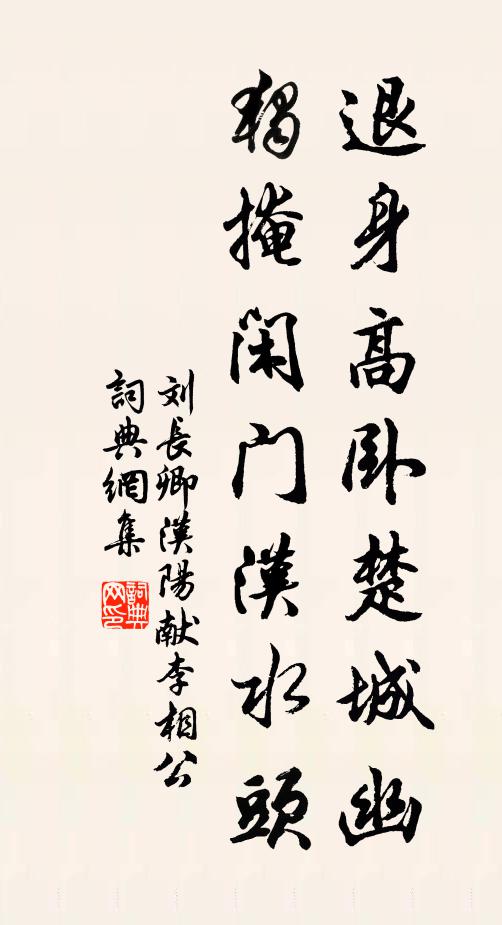 退身高卧楚城幽
獨掩閑门漢水頭
刘長卿漢陽献李相公
詞典網集
詞典网印